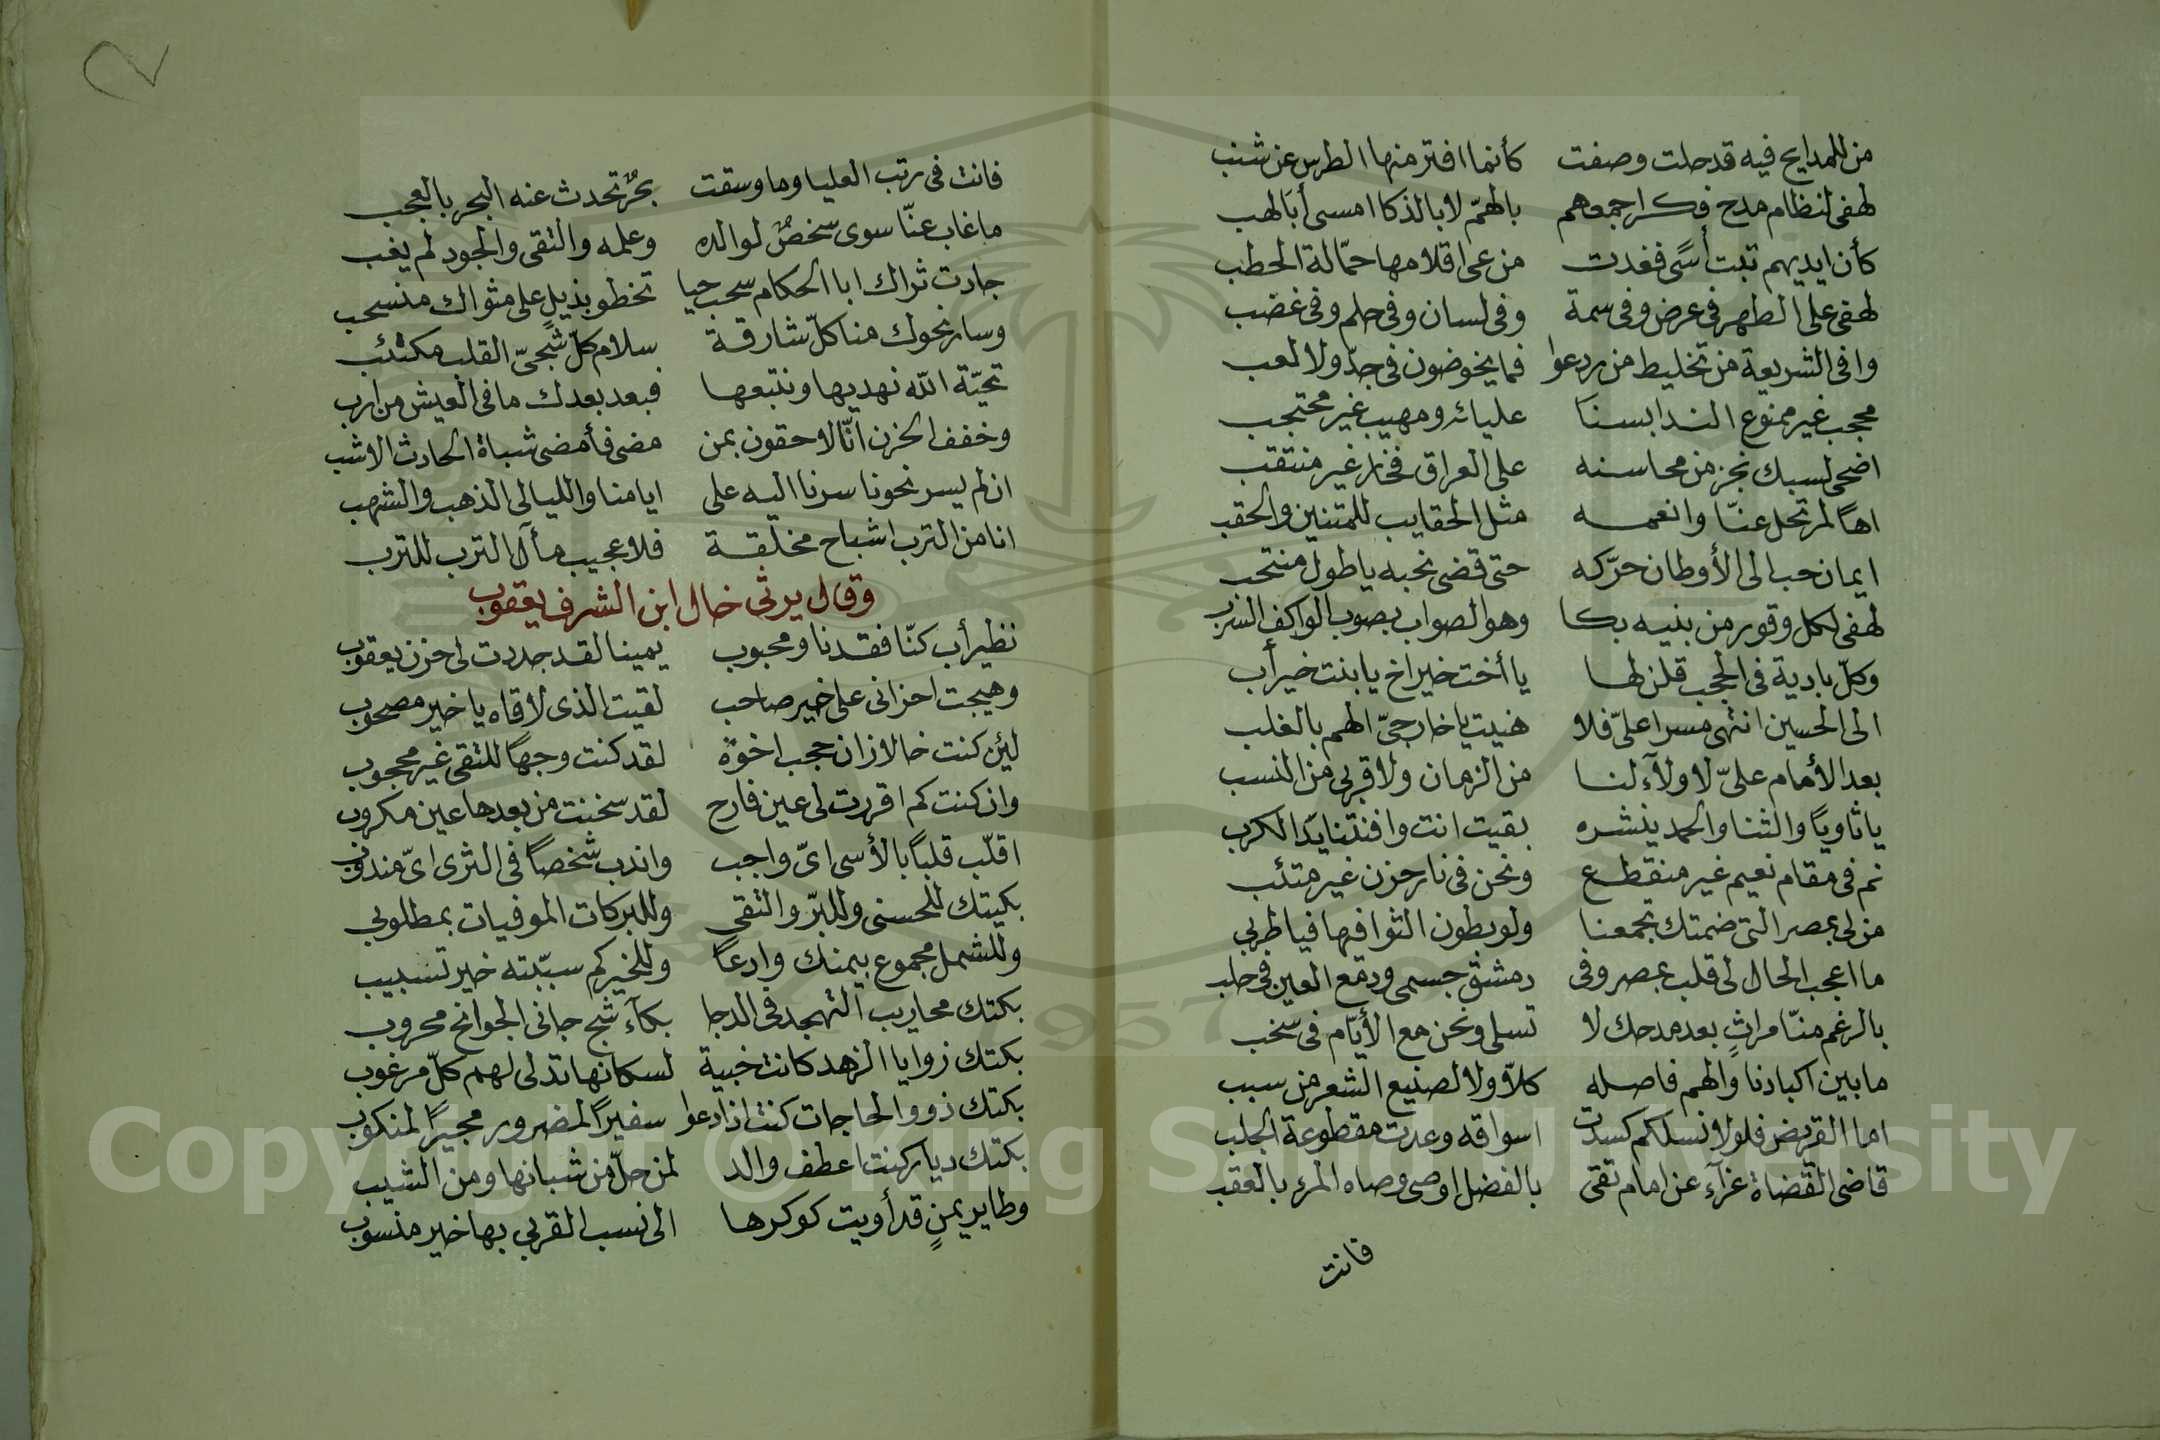 من للمدايح فيه قد حلت وصفت كأنما افتر منها الطرس عن شنب
لهفى لنظام مدح فكر اجمعهم بالهمّ لا بالذكا امسى أبا لهب
كأن ايديهم تبت أسًى فغدت من عى اقلامها حمّالة الحطب
لهفى على الطهر فى عرض وفى سمة وفى لسان وفى حلم وفى غضب
وافى الشريعة من تخليط من ردعوا فما يخوضون فى جدّ ولا لعب
محجب غير ممنوع الندا بسنا عليائه ومهيب غير محتجب
اضحى لسبك نجز من محاسنه على العراق فخار غير منتقب
اهاً لمرتحل عنّا وانعمه مثل الحقايب للمتنين والحقب
ايمان حب الى الأوطان حرّكه حتى قضى نحبه يا طول منتحب
لهفى لكل وقور من بنيه بكا وهو الصواب بصوب الواكف السرب
وكلّ بادية فى الحجب قلن لها يا أخت خير اخ يا بنت خير أب
الى الحسين انتهى مسرا علىّ فلا هنيت يا خارجىّ الهم بالغلب
بعد الأمام علىّ لا ولآء لنا من الزمان ولا قربى من النسب
يا ثاويًا والثنا والحمد ينشره بقيت انت وافنتنا يد الكرب
نم فى مقام نعيم غير منقطع ونحن فى نار حزن غير متئب
من لى بمصر التى ضمتك تجمعنا ولو بطون الثوا فيها فيا طربى
ما اعجب الحال لى قلب بمصر وفى دمشق جسمى ودمع العين فى حلب
بالرغم منّا مراثٍ بعد مدحك لا تسلى ونحن مع الأيّام فى سخب
ما بين اكبادنا والهم فاصله كلاّ ولا لصنيع الشعر من سبب
اما القريض فلولا نسلكم كسدت اسواقه وعدت مقطوعة الجلب
قاضى القضاة غرآء عن امام تقى بالفضل اوصى وصاه المرء بالعقب
فانت
فانت فى رتب العليا وما وسقت بحرٌ تحدث عنه البحر بالعجب
ما غاب عنّا سوى سخصٌ لوالده وعلمه والتقى والجود لم يغب
جادت ثراك ابا الحكام سحب حيا تخطو بذيلٍ على مثواك منسحب
وسار نحوك منا كلّ شارقة سلام كلّ شجىّ القلب مكتئب
تحيّة الله نهديها ونتبعها فبعد بعدك ما فى العيش من ارب
وخفف الحزن انّا لاحقون بمن مضى فأمضى شباة الحادث الاشب
ان لم يسر نحونا سرنا اليه على ايامنا والليالى الذهب والشهب
انا من الترب اشباح مخلّقة فلا عجيب مآل الترب للترب
وقال يرثى خال ابن الشرف يعقوب
نظير أب كنّا فقدنا ومحبوب يمينا لقد جددت لى حزن يعقوب
وهيجت احزانى على خير صاحب لقيت الذى لاقاه يا خير مصحوب
لئن كنت خالا زان حجب اخوة لقد كنت وجهاً للتقى غير محجوب
وان كنت كم اقررت لى عين فارح لقد سخنت من بعدها عين مكروب
اقلّب قلباً بالأسى اىّ واجب واندب شخصاً فى الثرى اىّ مندوب
بكيتك للحسنى وللبرّ والتقى وللبركات الموفيات بمطلوبى
وللشمل مجموع بيمنك وادعاً وللخير كم سبّبته خير تسبيب
بكتك محاريب التهجد فى الدجا بكآء شج جانى الجوانح محروب
بكتك زوايا الزهد كانت خبية لسكانها تدلى لهم كلّ مرغوب
بكتك ذووا الحاجات كنت اذا دعوا سفيراً لمضرور مجيراً لمنكوب
بكتك ديار كنت اعطف والد لمن حلّ من شبانها ومن الشيب
وطاير يمنٍ قد أويت كوكرها الى نسب القربى بها خير منسوب